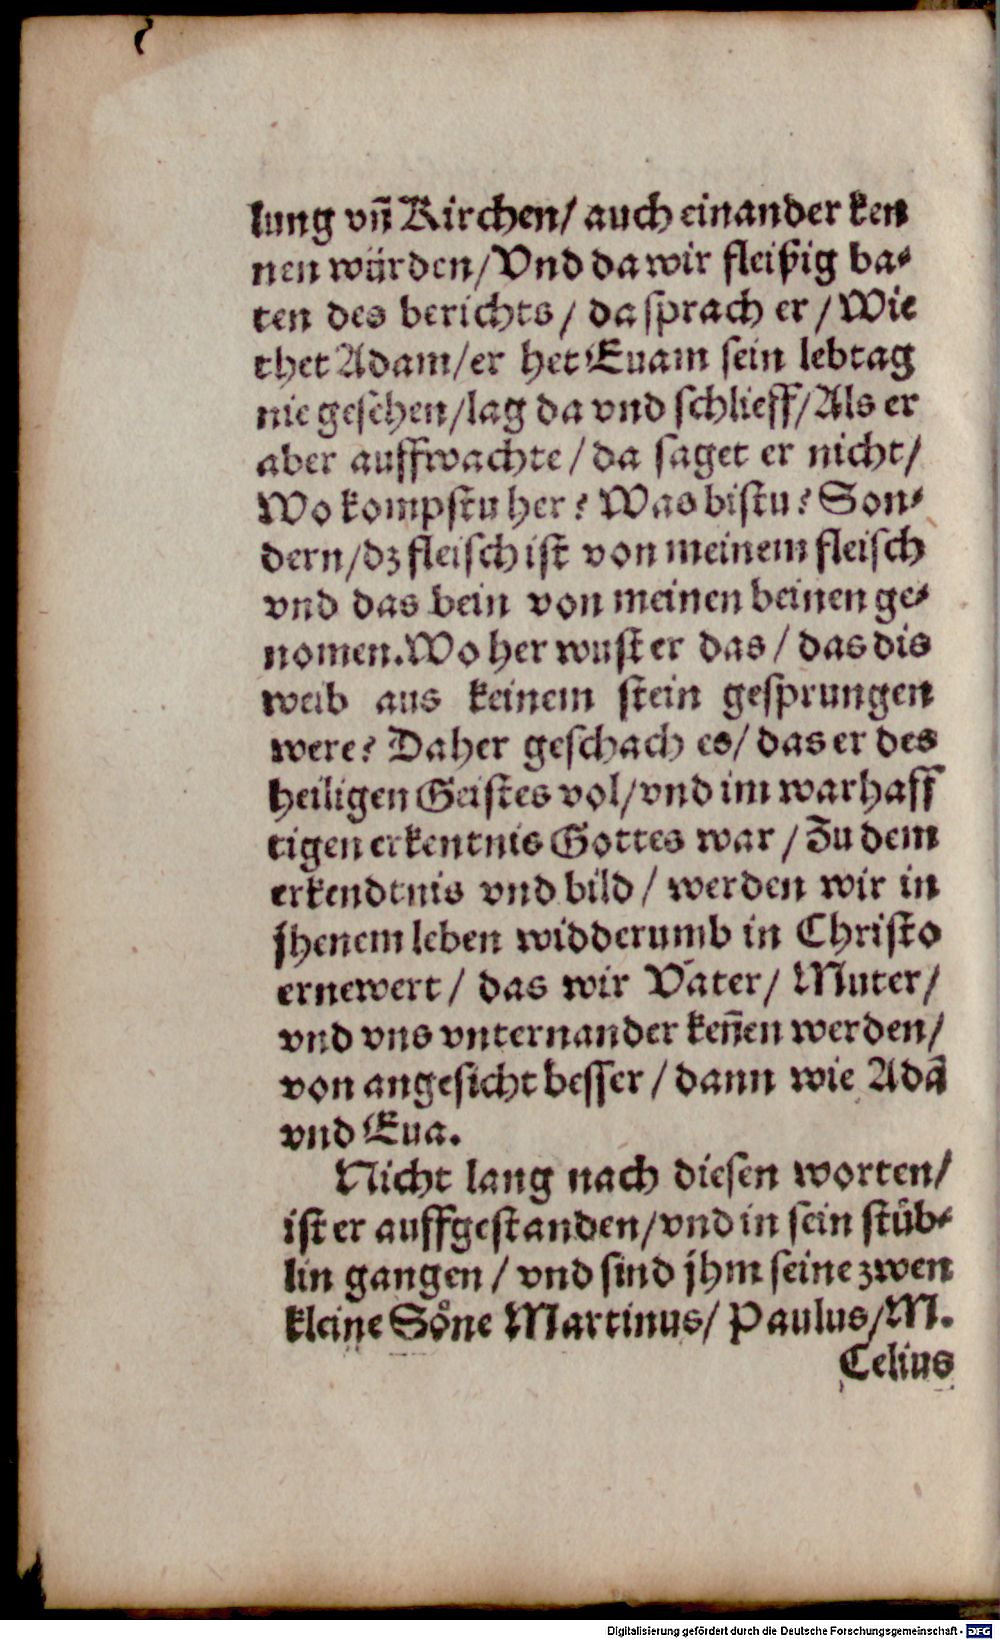 lung vñ Kirchen/ auch einander ken
nen würden/ Vnd da wir fleißig ba⸗
ten des berichts / da sprach er / Wie
thet Adam/ er het Euam sein lebtag
nie gesehen/ lag da vnd schlieff/ Als er
aber auffwachte / da saget er nicht/
Wo kompstu her? Was bistu? Son⸗
dern/ dz fleisch ist von meinem fleisch
vnd das bein von meinen beinen ge⸗
nomen. Wo her wust er das / das dis
weib aus keinem stein gesprungen
were? Daher geschach es/ das er des
heiligen Geistes vol/ vnd im warhaff
tigen erkentnis Gottes war / Zu dem
erkendtnis vnd bild / werden wir in
jhenem leben widderumb in Christo
ernewert / das wir Vater/ Muter/
vnd vns vnternander keñen werden/
von angesicht besser / dann wie Adã
vnd Eua.
Nicht lang nach diesen worten/
ist er auffgestanden/ vnd in sein stüb⸗
lin gangen / vnd sind jhm seine zwen
kleine Söne Martinus/ Paulus/ M.
Celius
Digitalisierung gefördert durch die Deutsche Forschungsgemeinschaft - DFG